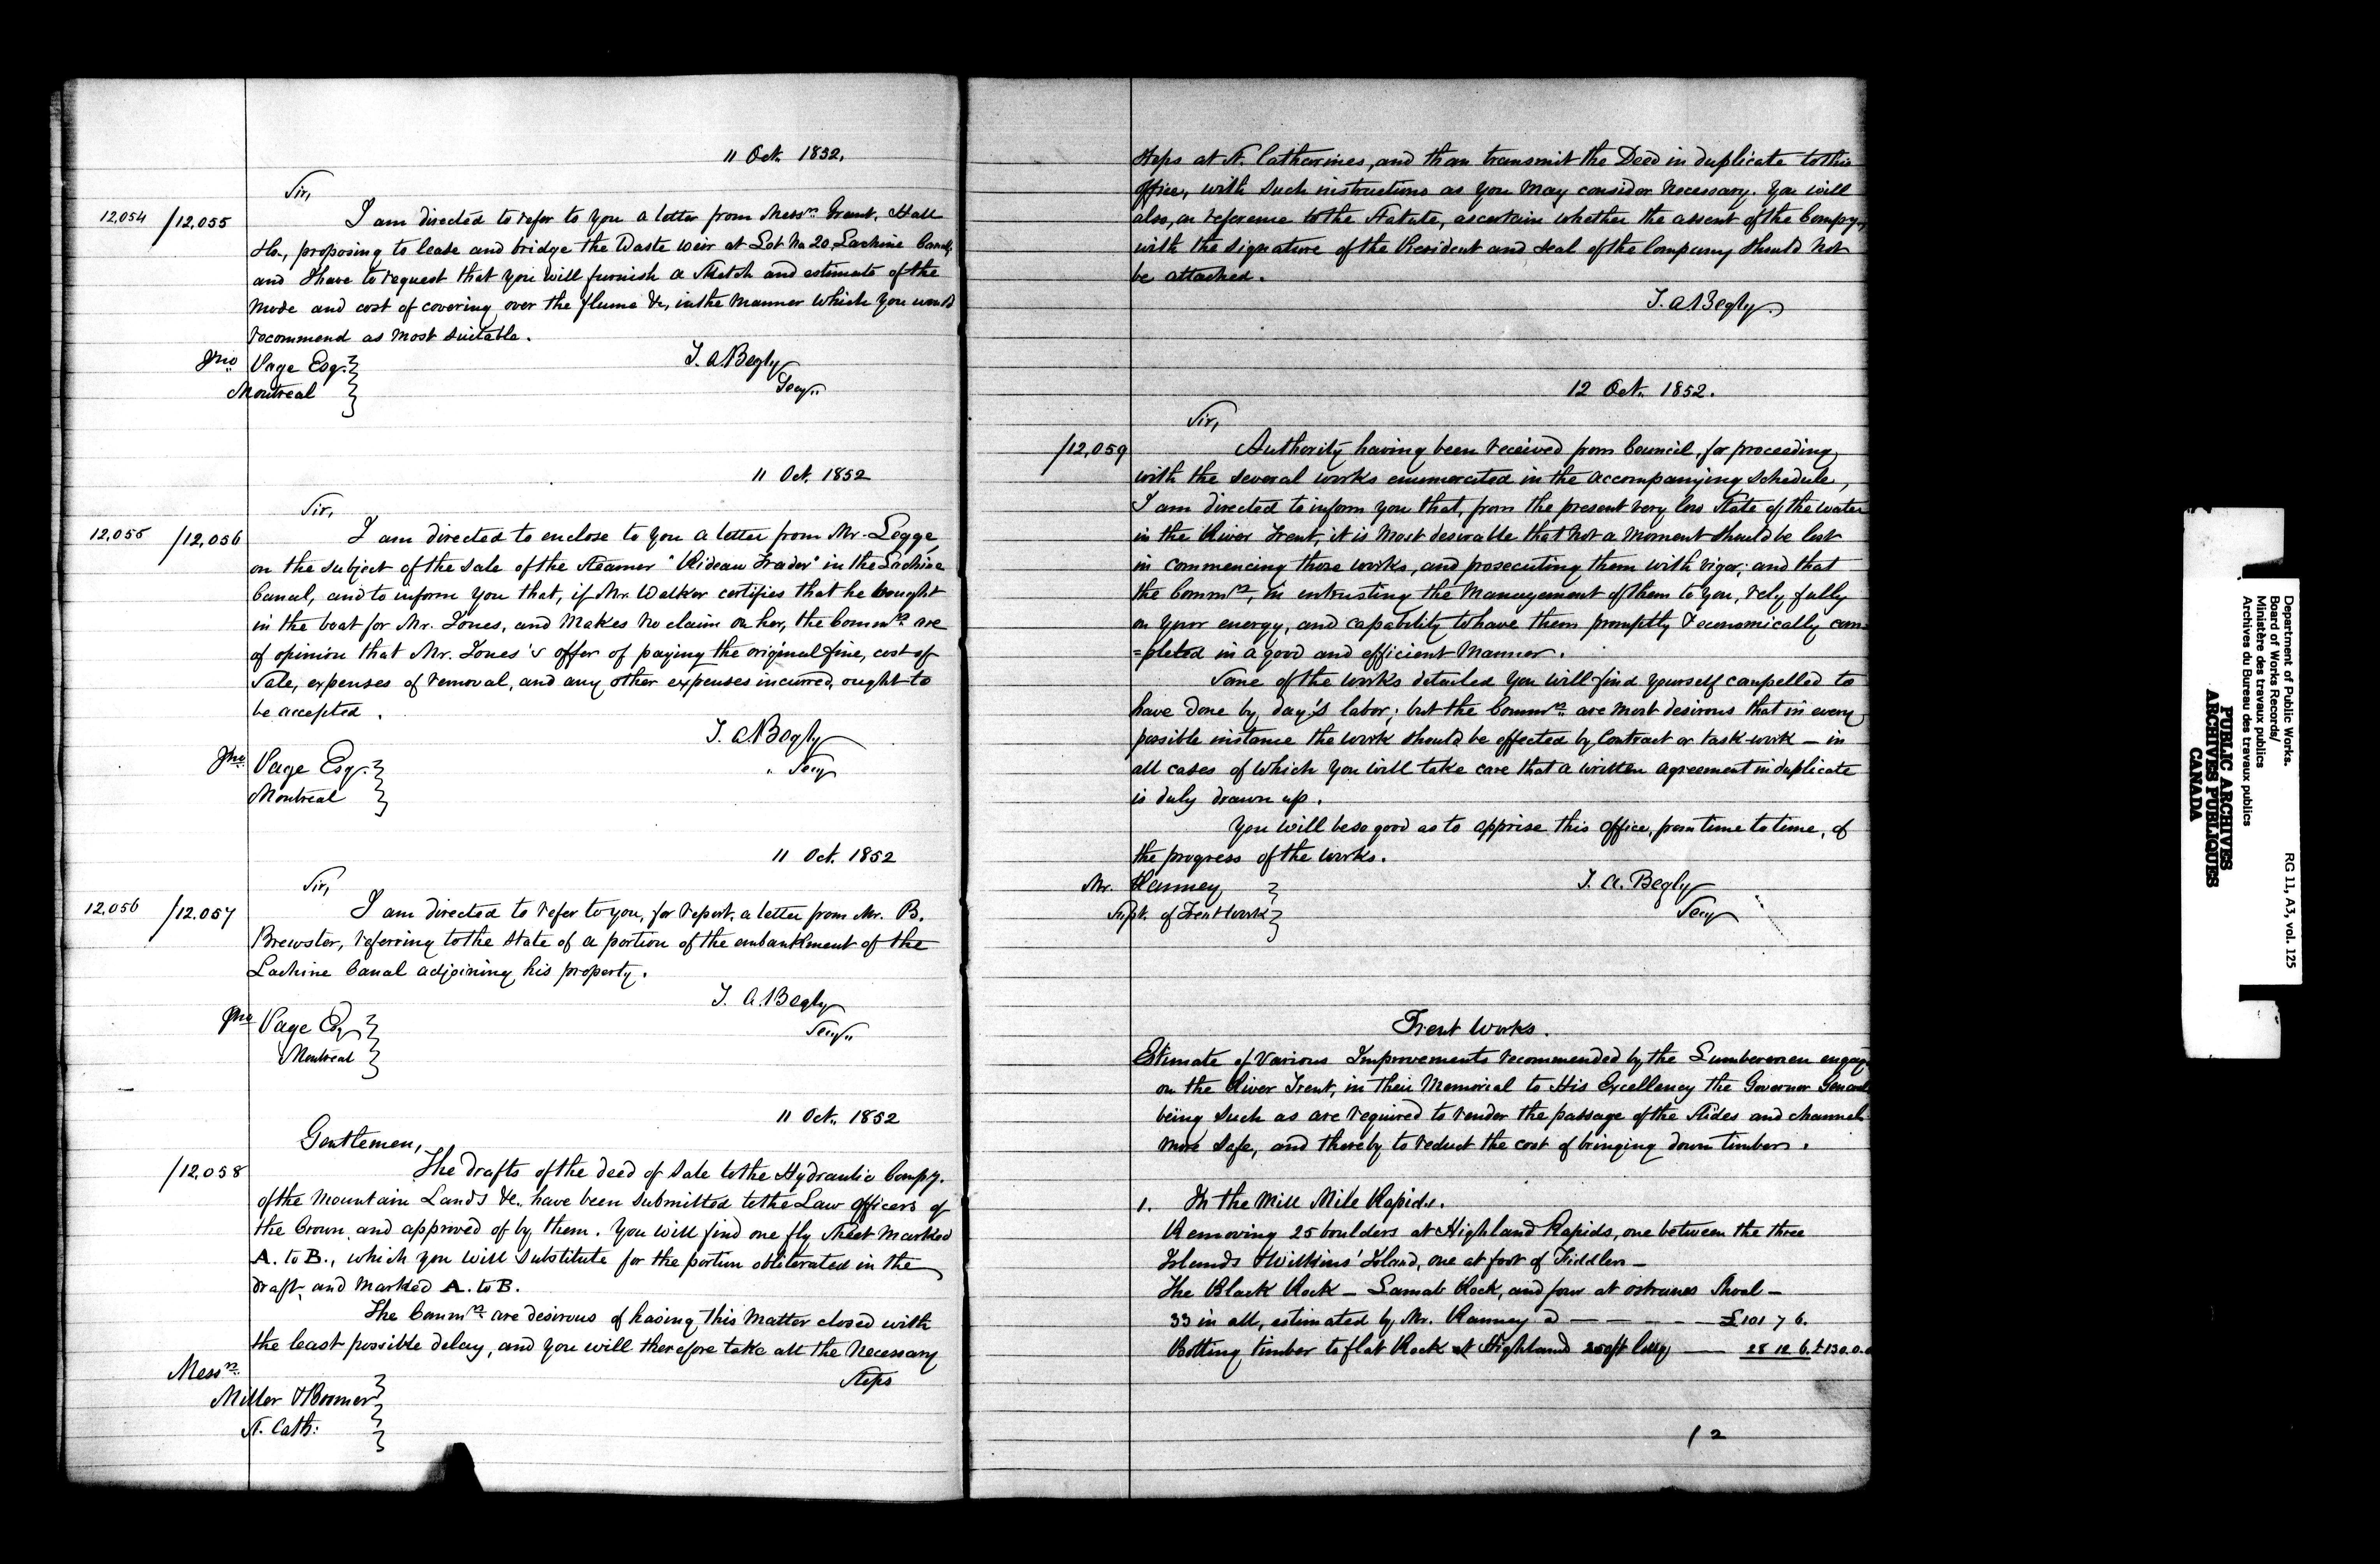 11 Oct. 1852.
Sir,
12,054 /12,055 I am directed to refer to you a letter from Messrs. Grant, Hall
&Co., proposing to lease and bridge the Waste weir at Lot No 20, Lachine Canal,
and I have to request that you will furnish a Sketch and estimate of the
mode and cost of covering over the flume &c, in the manner which you would
recommend as most suitable.
Jno Page Esq.
Montreal
T. A. Begly
Secy.
11 Oct. 1852
Sir,
12,055 /12,056 I am directed to enclose to you a letter from Mr. Legge,
on the subject of the sale of the Steamer "Rideau Trader" in the Lachine
Canal, and to inform you that, if Mr. Walker certifies that he bought
in the boat for Mr. Jones, and makes no claim on her, the Commrs. are
of opinion that Mr. Jones's offer of paying the original fine, cost of
Sale, expenses of removal, and any other expenses incurred, ought to
be accepted.
T. A. Begly
Secy
Jno. Page Esq.
Montreal
11 Oct. 1852
Sir,
12,056 /12,057 I am directed to refer to you, for report, a letter from Mr. B.
Brewster, referring to the state of a portion of the embankment of the
Lachine Canal adjoining his property.
T. A. Begly
Secy.
Jno Page Esq
Montreal
11 Oct. 1852
Gentlemen,
/12,058 The drafts of the deed of Sale to the Hydraulic Compy.
of the Mountain Lands &c. have been submitted to the Law Officers of
the Crown, and approved of by them. You will find one fly sheet marked
A. to B., which you will substitute for the portion obliterated in the
draft, and marked A. to B.
The Commrs. are desirous of having this matter closed with
the least possible delay, and you will therefore take all the necessary
Steps
Messrs.
Miller & Boomer
St. Cath:
Steps at St. Catharines, and then transmit the Deed in duplicate to this
office, with such instructions as you may consider necessary. You will
also, on reference to the Statute, ascertain whether the assent of the Compy.,
with the signature of the President and Seal of the Company should not
be attached.
T. A. Begly.
12 Oct. 1852.
Sir,
/12,059 Authority having been received from Council, for proceeding
with the several works enumerated in the accompanying schedule,
I am directed to inform you that, from the present very low State of the water
in the River Trent, it is most desirable that not a moment should be lost
in commencing those works, and prosecuting them with vigor; and that
the Commrs., in entrusting the management of them to you, rely fully
on your energy, and capability to have them promptly & economically com=
=pleted in a good and efficient manner.
Some of the works detailed you will find yourself compelled to
have done by day's labor; but the Commrs. are most desirous that in every
possible instance the work should be effected by Contract or task-work — in
all cases of which you will take care that a written agreement in duplicate
is duly drawn up.
You will be so good as to apprise this office, from time to time, of
the progress of the works.
Mr. Ranney
Supt. of Trent Works
T. A. Begly
Secy
Trent Works.
Estimate of various Improvements recommended by the Lumbermen engag
on the River Trent, in their Memorial to His Excellency the Governor General
being such as are required to render the passage of the Slides and channels
more safe, and thereby to reduct the cost of bringing down timber.
1. In the Mill Mile Rapids.
Removing 25 boulders at Highland Rapids, one between the three
Islands & Wilkins' Island, one at foot of Fiddlers —
The Black Rock — Rock, and four at Shoal —
33 in all, estimated by Mr. Ranney @ — — — — £101 7 6.
Bolting timber to flat Rock at Highland 250ft long — 28 12 6. £130.0.0
12
Department of Public Works.
Board of Works Records/
Ministère des travaux publics
Archives du Bureau des travaux publics
RG 11, A3, vol. 125
PUBLIC ARCHIVES
ARCHIVES PUBLIQUES
CANADA